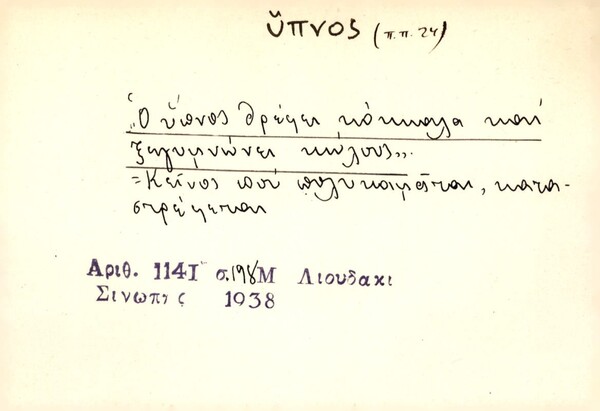 ὕπνος (π.π. 24)
„Ὁ ὕπνος θρέφει κόκκαλα καί
ξεγυμνώνει κώλους„.
=Κεῖνος πού πολυκοιμᾶται, κατα-
στρέφεται
Αριθ. 1141 σ.198 Μ Λιουδακι
Σινωπης 1938